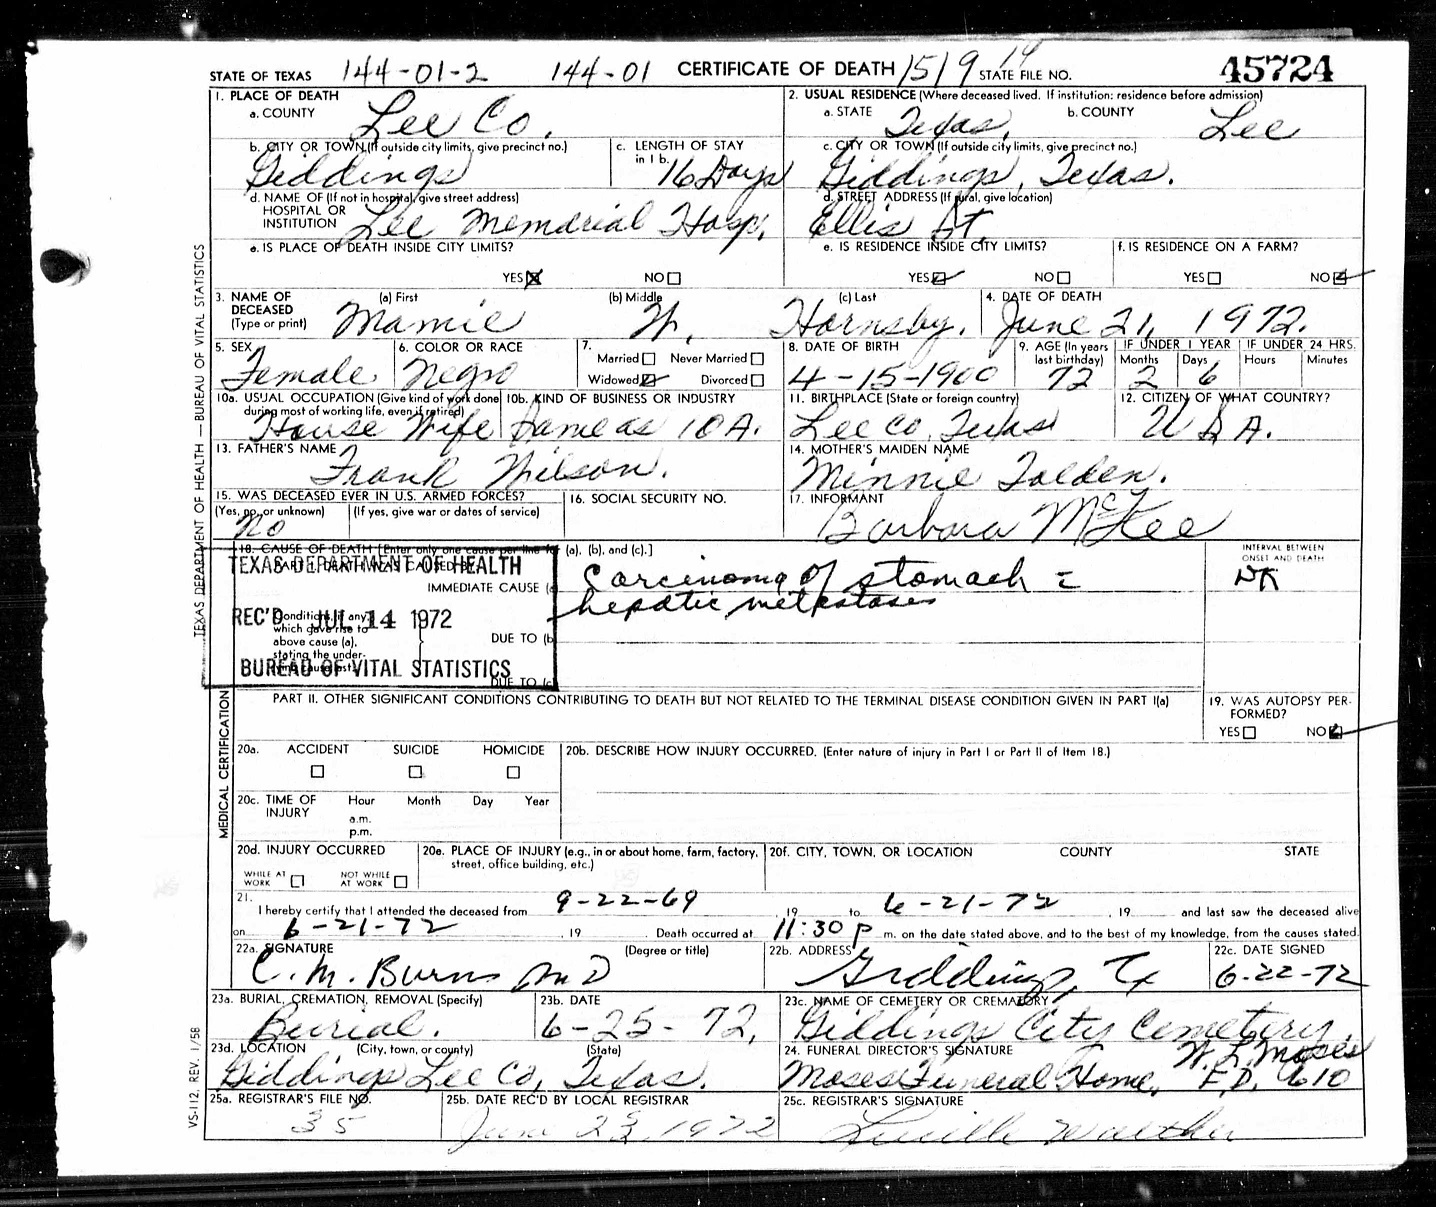 STATE OF TEXAS 144-01-2 144-01 CERTIFICATE OF DEATH 1519 14 STATE FILE NO. 45724
1. PLACE OF DEATH
a. COUNTY Lee Co.
2. USUAL RESIDENCE (Where deceased lived. If institution: residence before admission)
a. STATE Texas, b. COUNTY Lee
b. CITY OR TOWN (If outside city limits, give precinct no.)
Giddings
c. LENGTH OF STAY in 1 b. 16 Days
c. CITY OR TOWN (If outside city limits, give precinct no.)
Giddings, Texas.
d. NAME OF (If not in hospital, give street address)
HOSPITAL OR
INSTITUTION Lee Memorial Hosp.
d. STREET ADDRESS (If rural, give location)
Ellis St.
e. IS PLACE OF DEATH INSIDE CITY LIMITS?
YES NO
e. IS RESIDENCE INSIDE CITY LIMITS?
YES NO
f. IS RESIDENCE ON A FARM?
YES NO
3. NAME OF DECEASED (Type or print)
(a) First Mamie (b) Middle W. (c) Last Hornsby.
4. DATE OF DEATH
June 21, 1972.
5. SEX
Female
6. COLOR OR RACE
Negro
7.
Married Never Married
Widowed Divorced
8. DATE OF BIRTH
4-15-1900
9. AGE (In years last birthday)
72
IF UNDER 1 YEAR
Months 2 Days 6
IF UNDER 24 HRS.
Hours Minutes
10a. USUAL OCCUPATION (Give kind of work done during most of working life, even if retired)
House Wife
10b. KIND OF BUSINESS OR INDUSTRY
Same as 10A.
11. BIRTHPLACE (State or foreign country)
Lee Co, Texas
12. CITIZEN OF WHAT COUNTRY?
U S A.
13. FATHER'S NAME
Frank Wilson.
14. MOTHER'S MAIDEN NAME
Minnie Tolden.
15. WAS DECEASED EVER IN U.S. ARMED FORCES?
(Yes, no, or unknown) (If yes, give war or dates of service)
No
16. SOCIAL SECURITY NO.
17. INFORMANT
Barbara McKee
18. CAUSE OF DEATH [Enter only one cause per line for (a), (b), and (c).]
PART I. DEATH WAS CAUSED BY:
IMMEDIATE CAUSE (a) Carcinoma of stomach =
hepatic metastases
INTERVAL BETWEEN ONSET AND DEATH
DK
Conditions, if any, which gave rise to above cause (a), stating the underlying cause last.
DUE TO (b)
DUE TO (c)
TEXAS DEPARTMENT OF HEALTH
REC'D JUL 14 1972
BUREAU OF VITAL STATISTICS
PART II. OTHER SIGNIFICANT CONDITIONS CONTRIBUTING TO DEATH BUT NOT RELATED TO THE TERMINAL DISEASE CONDITION GIVEN IN PART I(a)
19. WAS AUTOPSY PERFORMED?
YES NO
20a. ACCIDENT SUICIDE HOMICIDE
20b. DESCRIBE HOW INJURY OCCURRED. (Enter nature of injury in Part I or Part II of Item 18.)
20c. TIME OF INJURY Hour Month Day Year
a.m.
p.m.
20d. INJURY OCCURRED
WHILE AT WORK NOT WHILE AT WORK
20e. PLACE OF INJURY (e.g., in or about home, farm, factory, street, office building, etc.)
20f. CITY, TOWN, OR LOCATION COUNTY STATE
21.
I hereby certify that I attended the deceased from 9-22-69, 19 to 6-21-72, 19 and last saw the deceased alive
on 6-21-72, 19 Death occurred at 11:30 p m. on the date stated above, and to the best of my knowledge, from the causes stated.
22a. SIGNATURE (Degree or title)
C. M. Burns MD
22b. ADDRESS
Giddings, Tx
22c. DATE SIGNED
6-22-72
23a. BURIAL, CREMATION, REMOVAL (Specify)
Burial.
23b. DATE
6-25-72,
23c. NAME OF CEMETERY OR CREMATORY
Giddings City Cemetery.
23d. LOCATION (City, town, or county) (State)
Giddings Lee Co, Texas.
24. FUNERAL DIRECTOR'S SIGNATURE W. L. Moses
Moses Funeral Home, F.D. 610
25a. REGISTRAR'S FILE NO.
35
25b. DATE REC'D BY LOCAL REGISTRAR
June 23, 1972
25c. REGISTRAR'S SIGNATURE
Lucille Walther
TEXAS DEPARTMENT OF HEALTH — BUREAU OF VITAL STATISTICS
MEDICAL CERTIFICATION
VS-112, REV. 1/58